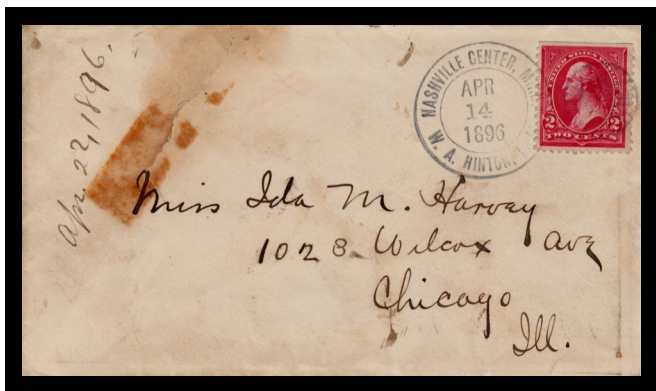 Apr. 22, 1896.
NASHVILLE CENTER, MINN.
APR
14
1896
W. A. HINTON,
UNITED STATES POSTAGE
2 2
TWO CENTS
Miss Ida M. Harvey
1028 Wilcox Ave
Chicago
Ill.